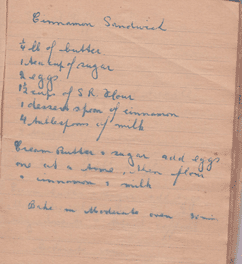 Cinnamon Sandwich
¼ lb of butter
1 tea cup of sugar
2 eggs
1½ cups of S R Flour
1 dessert spoon of cinnamon
4 tablespoons of milk
Cream Butter & sugar add eggs
one at a time. then flour
& cinnamon & milk
Bake in Moderate oven